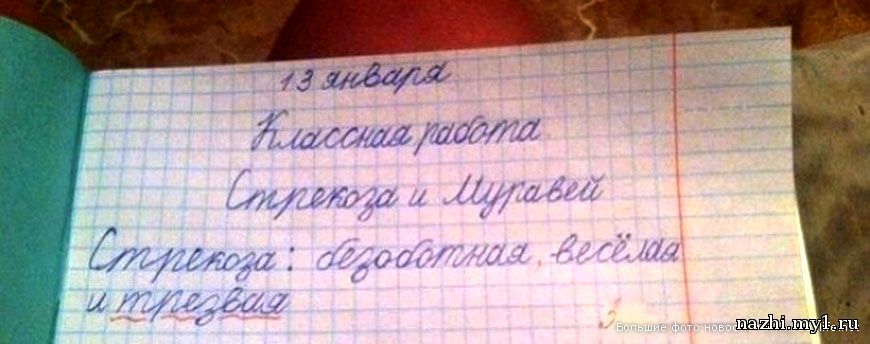 13 января
Классная работа
Стрекоза и Муравей
Стрекоза: безоботная, весёлая
и трезвая
3
Большие фото новос
nazhi.my1.ru